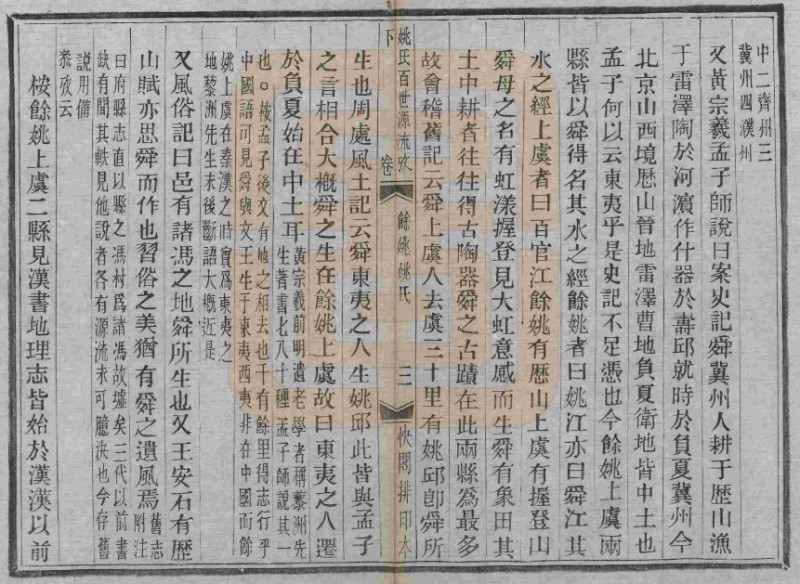 中二齊州三
冀州四濮州
又黃宗羲孟子師說曰案史記舜冀州人耕于歷山漁
于雷澤陶於河濱作什器於壽邱就時於負夏冀州今
北京山西境歷山晉地雷澤曹地負夏衛地皆中土也
孟子何以云東夷乎是史記不足憑也今餘姚上虞兩
縣皆以舜得名其水之經餘姚者曰姚江亦曰舜江其
水之經上虞者曰百官江餘姚有歷山上虞有握登山
舜母之名有虹漾握登見大虹意感而生舜有象田其
土中耕者往往得古陶器舜之古蹟在此兩縣為最多
故會稽舊記云舜上虞人去虞三十里有姚邱卽舜所
姚氏百世源流攷
卷下
餘姚姚氏
三
快閣排印本
生也周處風土記云舜東夷之人生姚邱此皆與孟子
之言相合大槪舜之生在餘姚上虞故曰東夷之人遷
於負夏始在中土耳黃宗羲前明遺老學者稱黎洲先
生著書七八十種孟子師說其一
也○桉孟子後文有地之相去也千有餘里得志行乎
中國語可見舜與文王生于東夷西夷非在中國而餘
姚上虞在秦漢之時實為東夷之
地黎洲先生末後斷語大槪近是
又風俗記曰邑有諸馮之地舜所生也又王安石有歷
山賦亦思舜而作也習俗之美猶有舜之遺風焉舊志
附注
曰府縣志直以縣之馮村為諸馮故墟矣三代以前書
缺有閒其軼見他說者各有源流未可臆決也今存舊
說用備
叅攷云
桉餘姚上虞二縣見漢書地理志皆始於漢漢以前